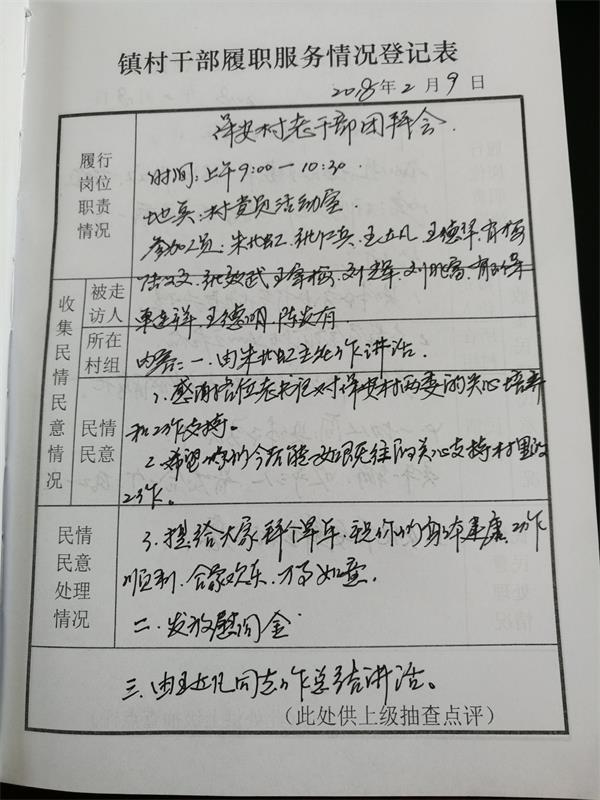 镇村干部履职服务情况登记表
2018年2月9日
履行
岗位
职责
情况
保安村老干部团拜会.
时间:上午9:00—10:30
地点:村党员活动室.
参加人员:朱 王 王德
刘 刘
王德明.陈 有
收集民情民意情况
被走
访人
所在
村组
民情
民意
内容:一.由朱 主任作讲话.
1.感谢各位老书记对保安村两委的关心培养
和工作支持。
2.希望你们今后能一如既往的关心支持村里的
工作。
民情
民意
处理
情况
3.提前给大家拜个早年,祝你们身体健康,工作
顺利.合家欢乐.万事如意.
二.发放慰问金
三.由王 同志作总结讲话。
(此处供上级抽查点评)